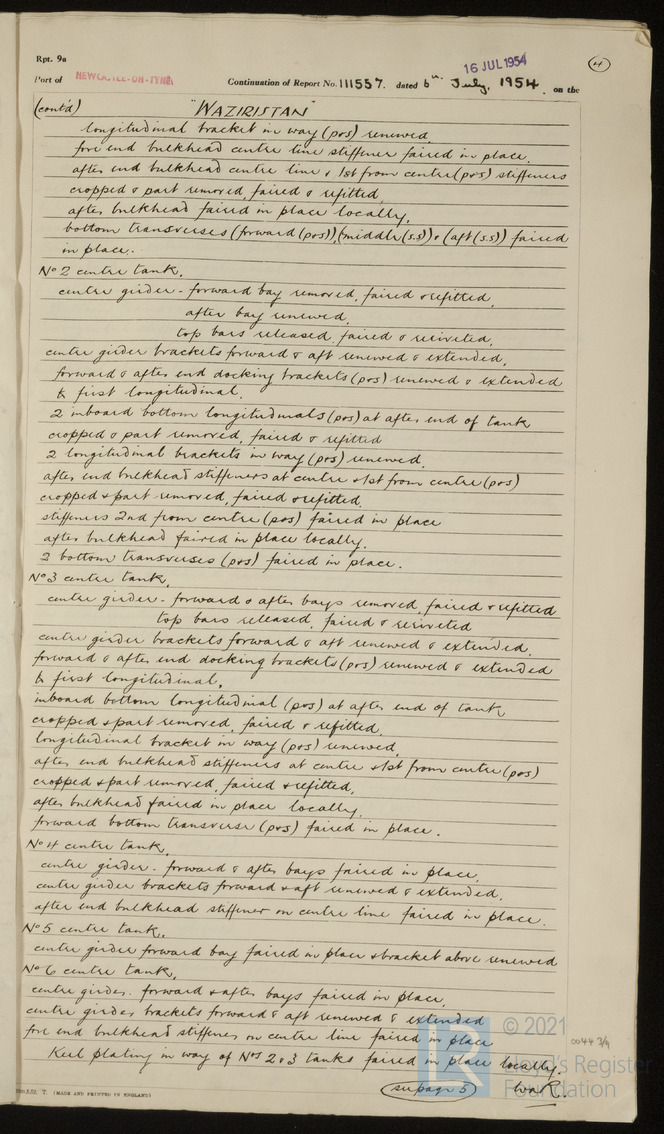 Rpt. 9a
16 JUL 1954
4
Port of NEWCASTLE-ON-TYNE Continuation of Report No. 111557. dated 6th July, 1954 on the
(contd) "WAZIRISTAN"
longitudinal bracket in way (pos) renewed
fore end bulkhead centre line stiffener faired in place,
after end bulkhead centre line & 1st from centre (pos) stiffeners
cropped & part removed, faired & refitted,
after bulkhead faired in place locally,
bottom transverses (forward (pos)), (middle (s.s)) & (aft (s.s)) faired
in place.
No 2 centre tank,
centre girder - forward bay removed, faired & refitted,
after bay renewed,
top bars released, faired & reriveted,
centre girder brackets forward & aft renewed & extended,
forward & after end docking brackets (pos) renewed & extended
to first longitudinal,
2 inboard bottom longitudinals (pos) at after end of tank
cropped & part removed, faired & refitted
2 longitudinal brackets in way (pos) renewed,
after end bulkhead stiffeners at centre & 1st from centre (pos)
cropped & part removed, faired & refitted,
stiffeners 2nd from centre (pos) faired in place
after bulkhead faired in place locally,
2 bottom transverses (pos) faired in place.
No 3 centre tank,
centre girder - forward & after bays removed, faired & refitted
top bars released, faired & reriveted
centre girder brackets forward & aft renewed & extended,
forward & after end docking brackets (pos) renewed & extended
to first longitudinal,
inboard bottom longitudinal (pos) at after end of tank
cropped & part removed, faired & refitted,
longitudinal bracket in way (pos) renewed,
after end bulkhead stiffeners at centre & 1st from centre (pos)
cropped & part removed, faired & refitted,
after bulkhead faired in place locally,
forward bottom transverse (pos) faired in place.
No 4 centre tank,
centre girder - forward & after bays faired in place,
centre girder brackets forward & aft renewed & extended,
after end bulkhead stiffener on centre line faired in place.
No 5 centre tank,
centre girder forward bay faired in place & bracket above renewed
No 6 centre tank,
centre girder. forward & after bays faired in place,
centre girder brackets forward & aft renewed & extended
fore end bulkhead stiffener on centre line faired in place
Keel plating in way of Nos 2 & 3 tanks faired in place locally.
(see page 5)
T. (MADE AND PRINTED IN ENGLAND)
© 2021
Lloyd's Register
Foundation